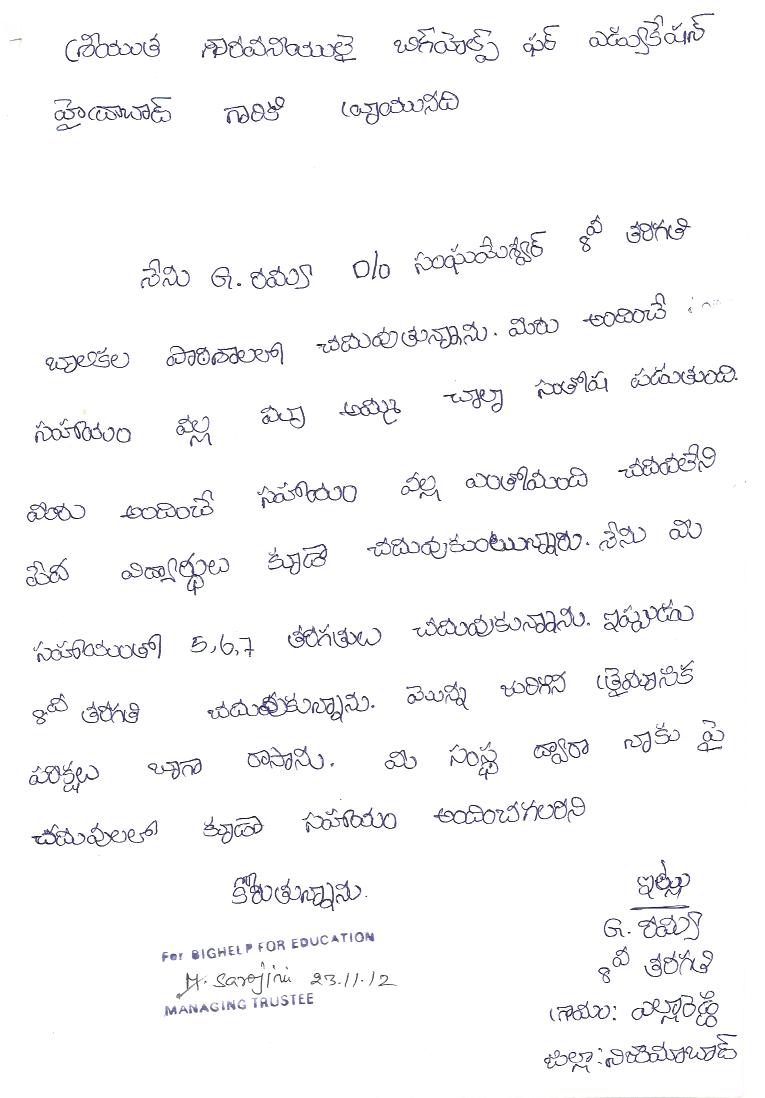 శ్రీయుత గౌరవనీయులై బిగ్‌హెల్ప్ ఫర్ ఎడ్యుకేషన్
హైద్రాబాద్ గారికి వ్రాయునది
నేను G. రమ్య D/o సంఘమేశ్వర్ 8వ తరగతి
బాలికల పాఠశాలలో చదువుతున్నాను. మీరు అందించే
సహాయం వల్ల మా అమ్మ చాల్లా సంతోష పడుతుంది.
మీరు అందించే సహాయం వల్ల ఎంతోమంది చదవలేని
పేద విద్యార్థులు కూడా చదువుకుంటున్నారు. నేను మీ
సహాయంతో 5,6,7 తరగతులు చదువుకున్నాను. ఇప్పుడు
8వ తరగతి చదువుకున్నాను. మొన్న జరిగిన త్రైమాసిక
పరీక్షలు బాగా రాసాను. మీ సంస్థ ద్వారా నాకు పై
చదువులలో కూడా సహాయం అందించగలరని
కోరుతున్నాను.
ఇట్లు
G. రమ్య
8వ తరగతి
గ్రామం: ఎల్లారెడ్డి
జిల్లా: నిజామాబాద్
For BIGHELP FOR EDUCATION
M. Sarojini 23.11.12
MANAGING TRUSTEE